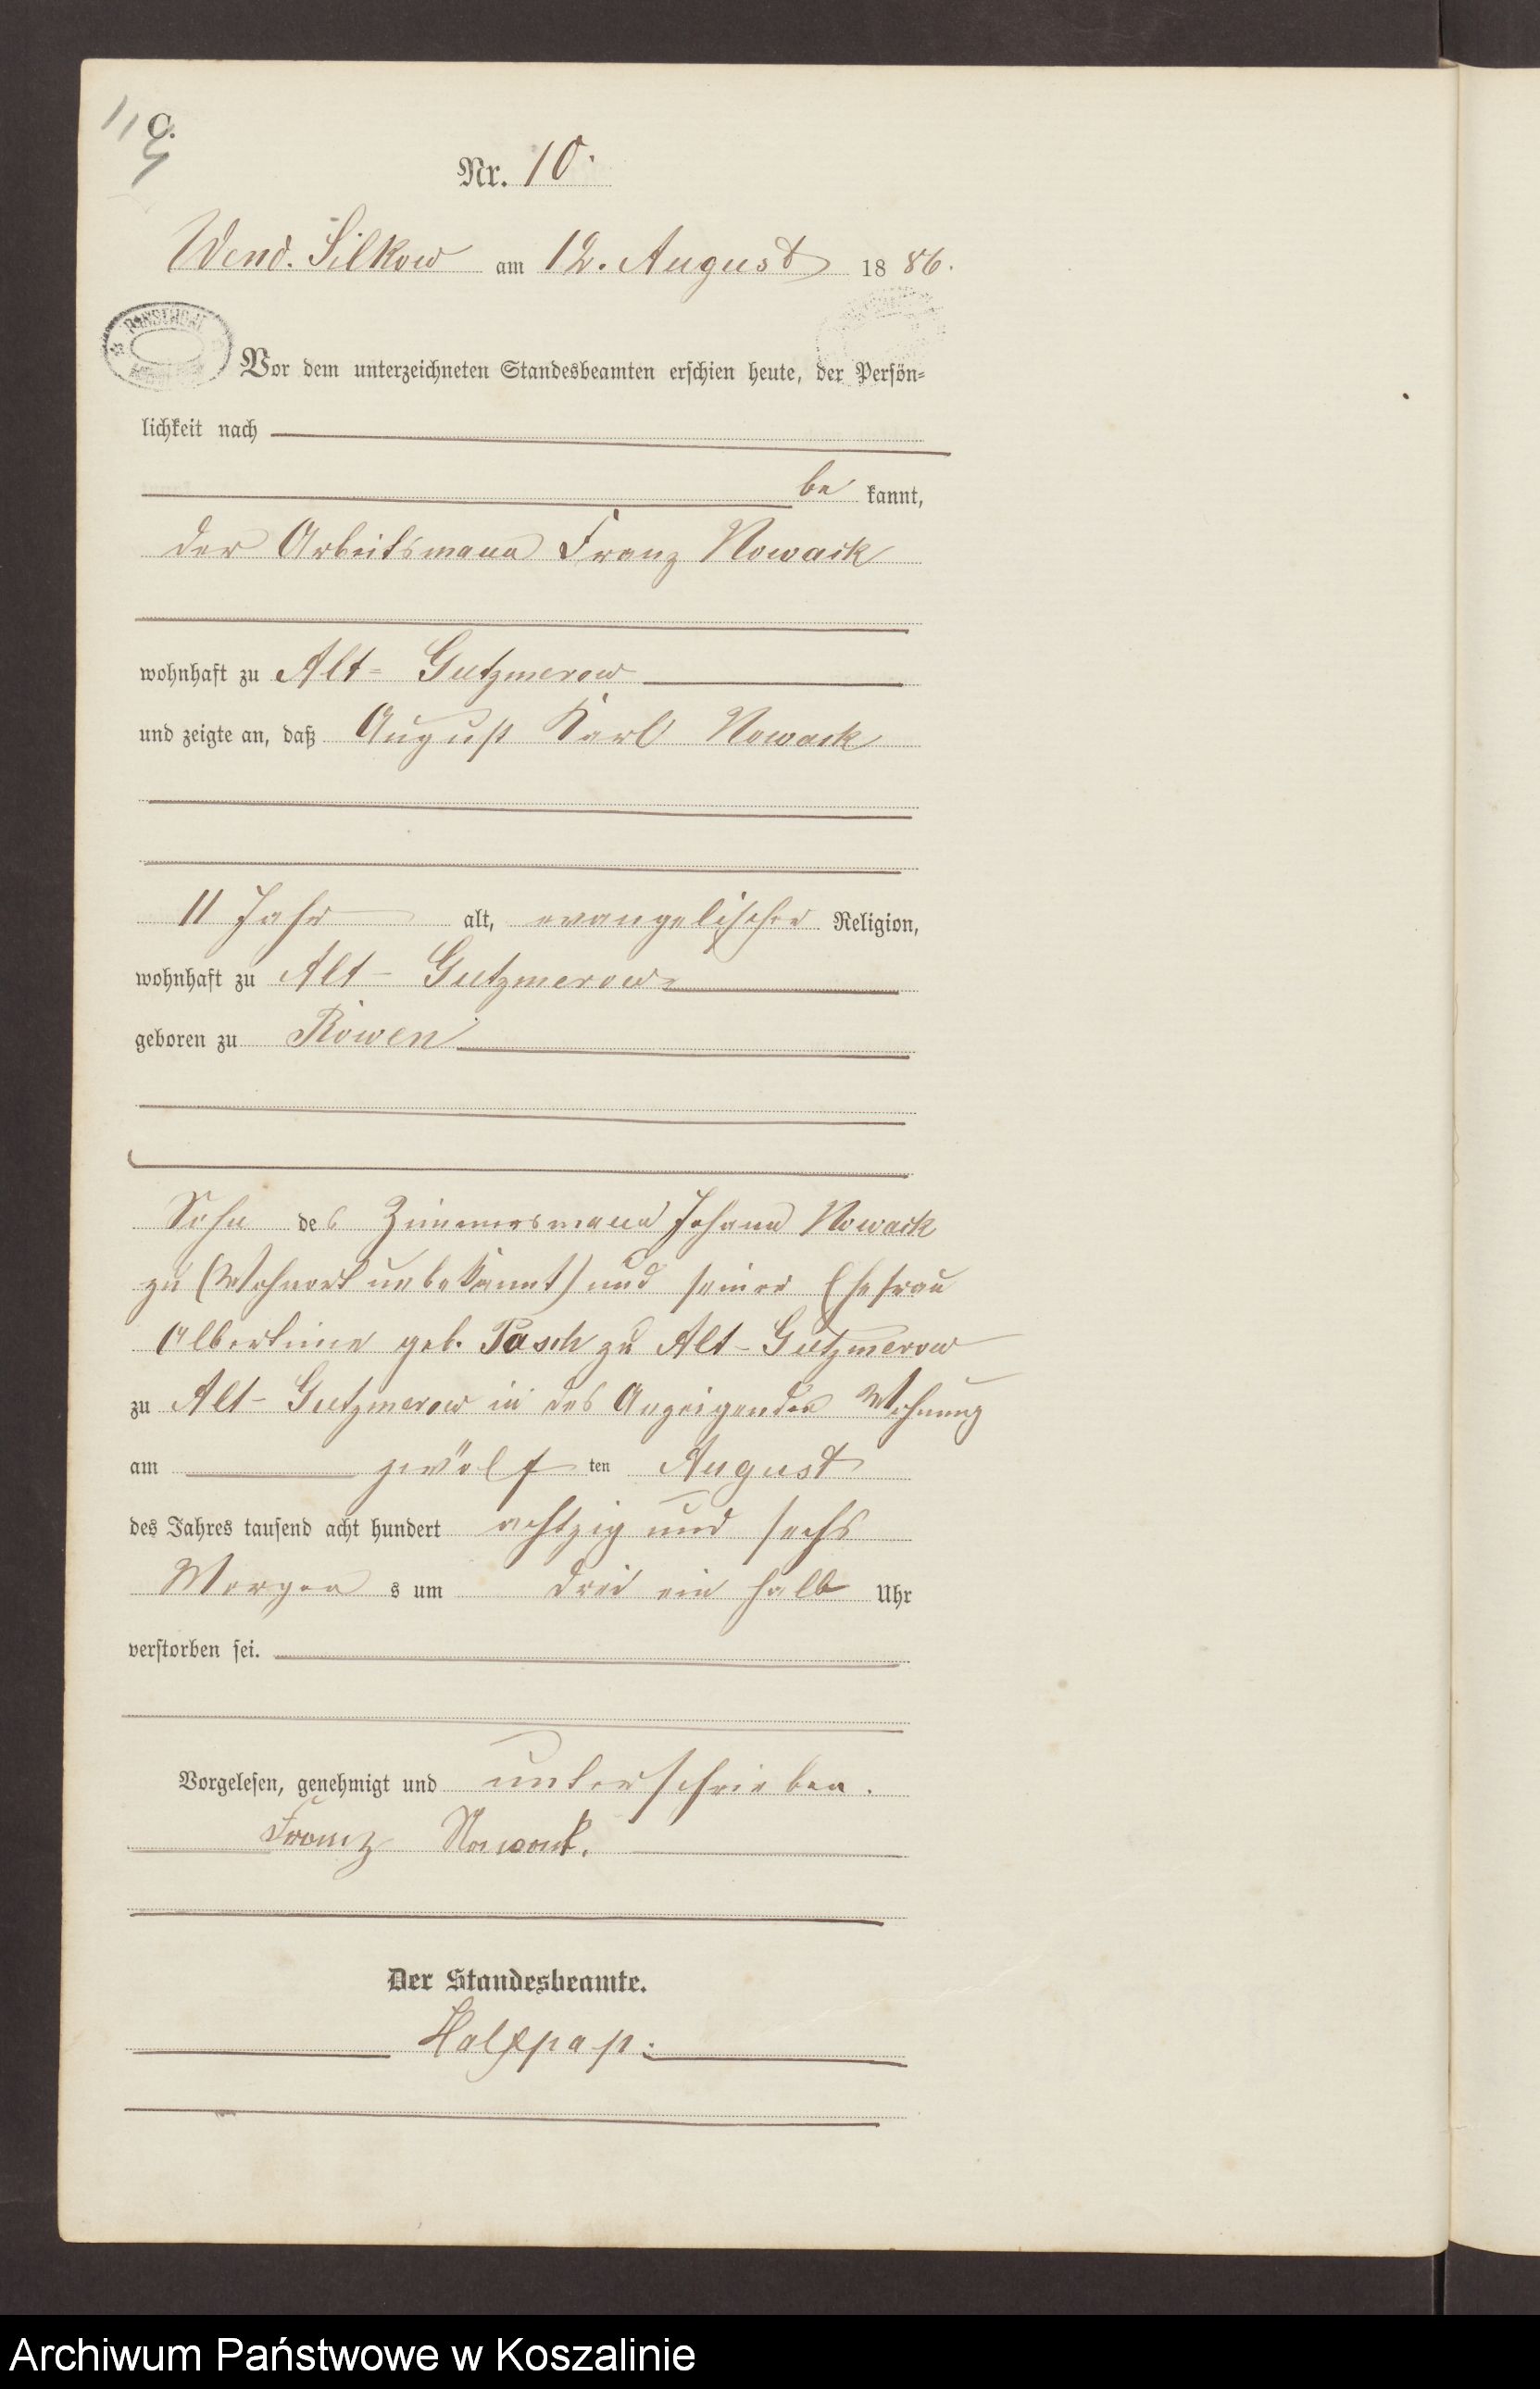 C.
Nr. 10.
Wend. Silkow am 12. August 1886.
Vor dem unterzeichneten Standesbeamten erschien heute, der Persön-
lichkeit nach
be kannt,
der Arbeitsmann Franz Nowack
wohnhaft zu Alt-Gutzmerow
und zeigte an, daß August Karl Nowack
11 Jahr alt, evangelischer Religion,
wohnhaft zu Alt-Gutzmerow
geboren zu Rowen
Sohn des Zimmermann Johann Nowack
zu (Wohnort unbekannt) und seiner Ehefrau
Albertine geb. Pasch zu Alt-Gutzmerow
zu Alt-Gutzmerow in des Anzeigenden Wohnung
am zwölf ten August
des Jahres tausend acht hundert achtzig und sechs
Morgen s um drei ein halb Uhr
verstorben sei.
Vorgelesen, genehmigt und unterschrieben.
Franz Nowack.
Der Standesbeamte.
Halfpap.
Archiwum Państwowe w Koszalinie